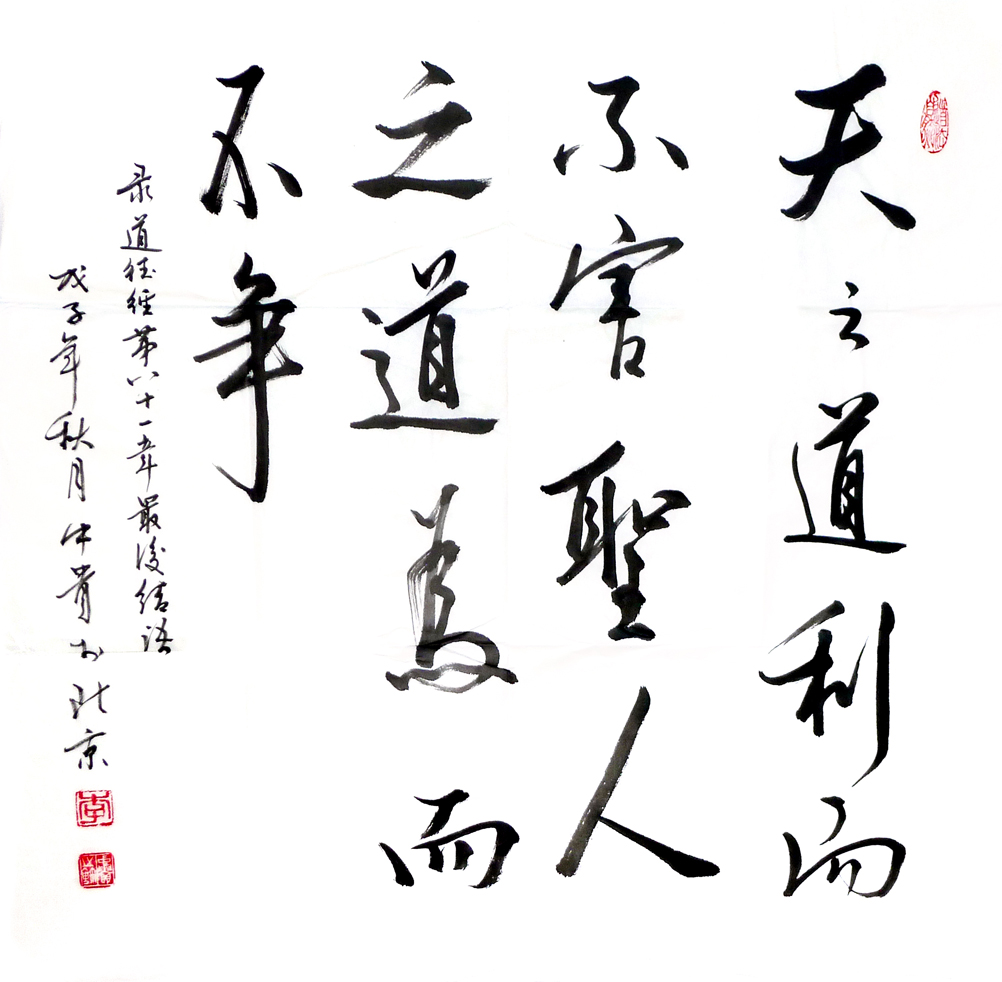 天之道利而
不害聖人
之道為而
不争
录道德經第八十一章最後結語
戊子年秋月中貴於北京